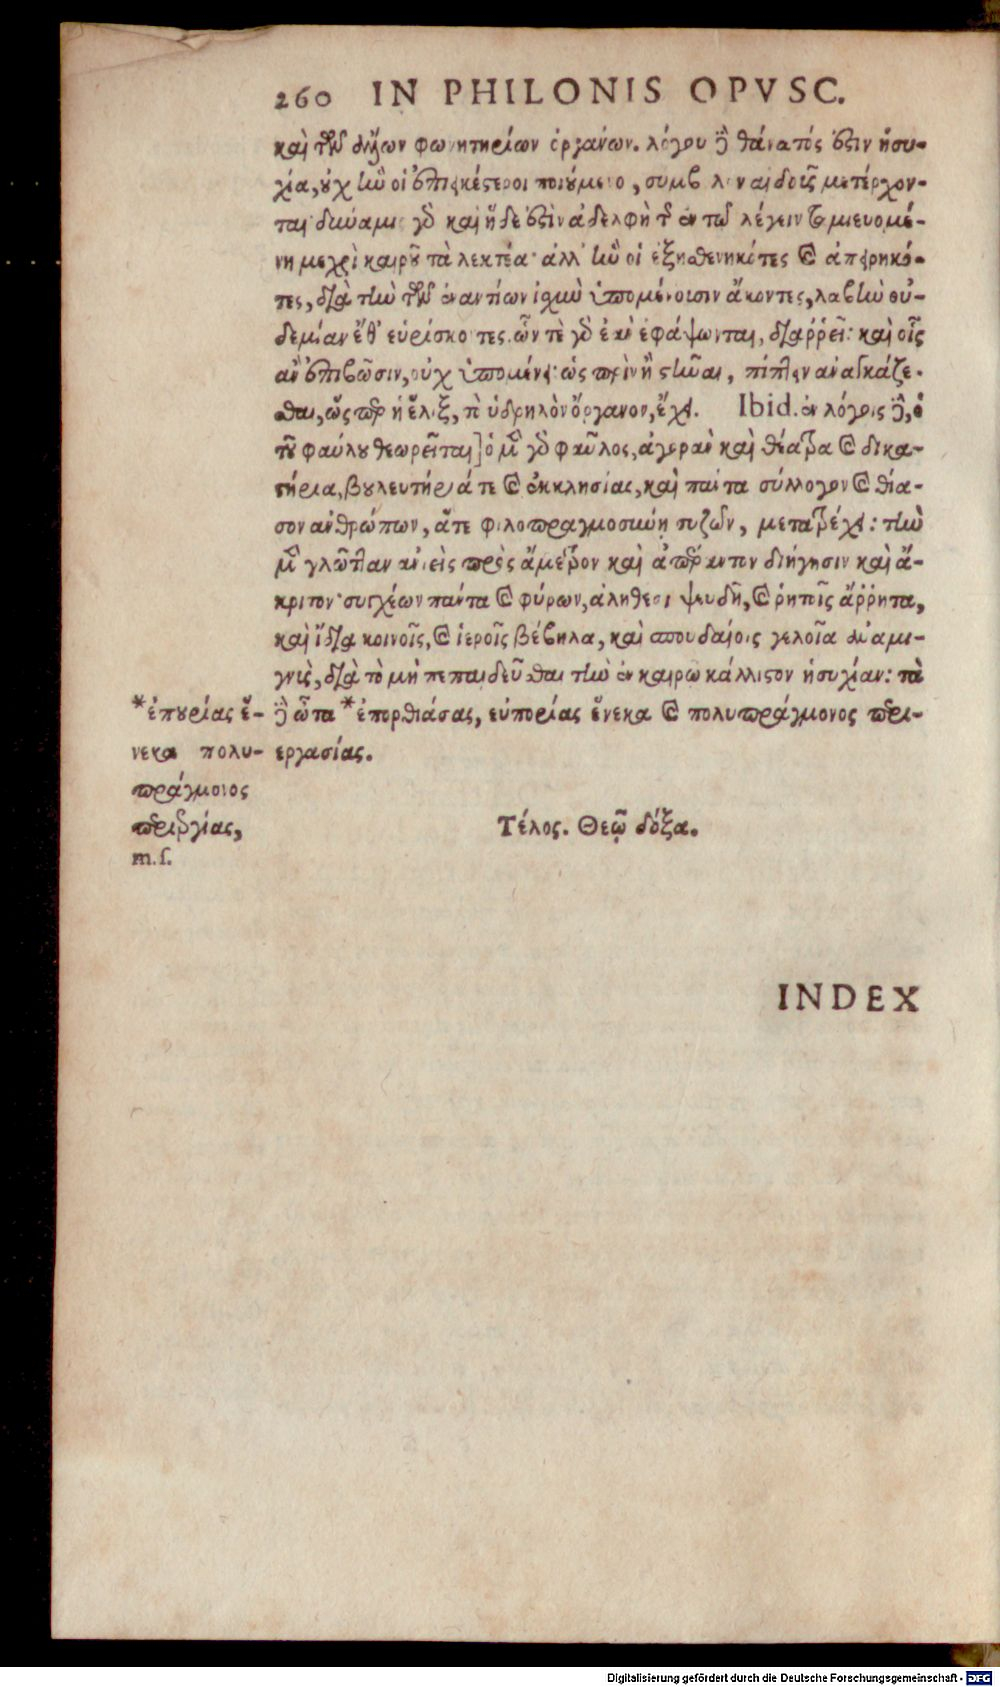 260 IN PHILONIS OPVSC.
καὶ τῶν ἄλλων φωνητηρίων ὀργάνων. λόγου δὲ θάνατός ἐστιν ἡσυ-
χία, οὐχ ἣν οἱ ἐπιεικέστεροι ποιούμενοι, σύμβολον αἰδοῦς μετέρχον-
ται· δύναμις γὰρ καὶ ἥδε ἐστὶν ἀδελφὴ τῆς ἐν τῷ λέγειν ταμιευομέ-
νη μεχρὶ καιροῦ τὰ λεκτέα· ἀλλ' ἣν οἱ ἐξησθενηκότες καὶ ἀπειρηκό-
τες, διὰ τὴν τῶν ἐναντίων ἰσχὺν ὑπομένουσιν ἄκοντες, λαβὴν οὐ-
δεμίαν ἔθ' εὑρίσκοντες. ὧν τε γὰρ ἐὰν ἐφάψωνται, διαῤῥεῖ: καὶ οἷς
ἂν ἐπιβῶσιν, οὐχ ὑπομένει· ὡς πρὶν ἢ στῆναι, πίπτειν ἀναγκάζε-
σθαι, ὥσπερ ἡ ἕλιξ, τὸ ὑδρηλὸν ὄργανον, ἔχει. Ibid. ἐν λόγοις δὲ, ὁ
τοῦ φαύλου θεωρεῖται] ὁ μὲν γὰρ φαῦλος, ἀγορὰν καὶ θέατρα καὶ δικα-
στήρια, βουλευτήριά τε καὶ ἐκκλησίας, καὶ πάντα σύλλογον καὶ θία-
σον ἀνθρώπων, ἅτε φιλοπραγμοσύνῃ συζῶν, μετατρέχει: τὴν
μὲν γλῶτταν ἀνιεὶς πρὸς ἄμετρον καὶ ἀπέραντον διήγησιν καὶ ἄ-
κριτον· συγχέων πάντα καὶ φύρων, ἀληθέσι ψευδῆ, καὶ ῥητοῖς ἄῤῥητα,
καὶ ἴδια κοινοῖς, καὶ ἱεροῖς βέβηλα, καὶ σπουδαίοις γελοῖα ἀναμι-
γνὺς, διὰ τὸ μὴ πεπαιδεῦσθαι τὴν ἐν καιρῷ κάλλιστον ἡσυχίαν: τὰ
δὲ ὦτα *ἐπορθιάσας, εὐπορίας ἕνεκα καὶ πολυπράγμονος περι-
εργασίας.
*ἐπουρίας ἕ-
νεκα πολυ-
πράγμονος
περιεργίας,
m.s.
Τέλος. Θεῷ δόξα.
INDEX
Digitalisierung gefördert durch die Deutsche Forschungsgemeinschaft - DFG